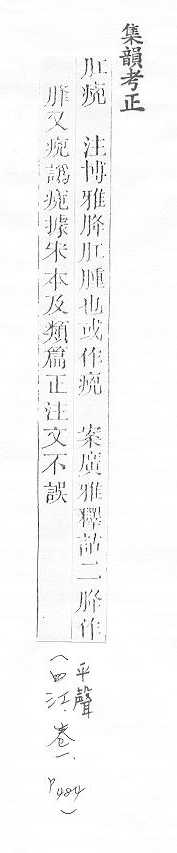 集韻考正
肛 注博雅胮肛腫也或作 案廣雅釋詁二胮作
肨又 譌 據宋本及類篇正注文不誤
平聲
(四江.卷一.P484)